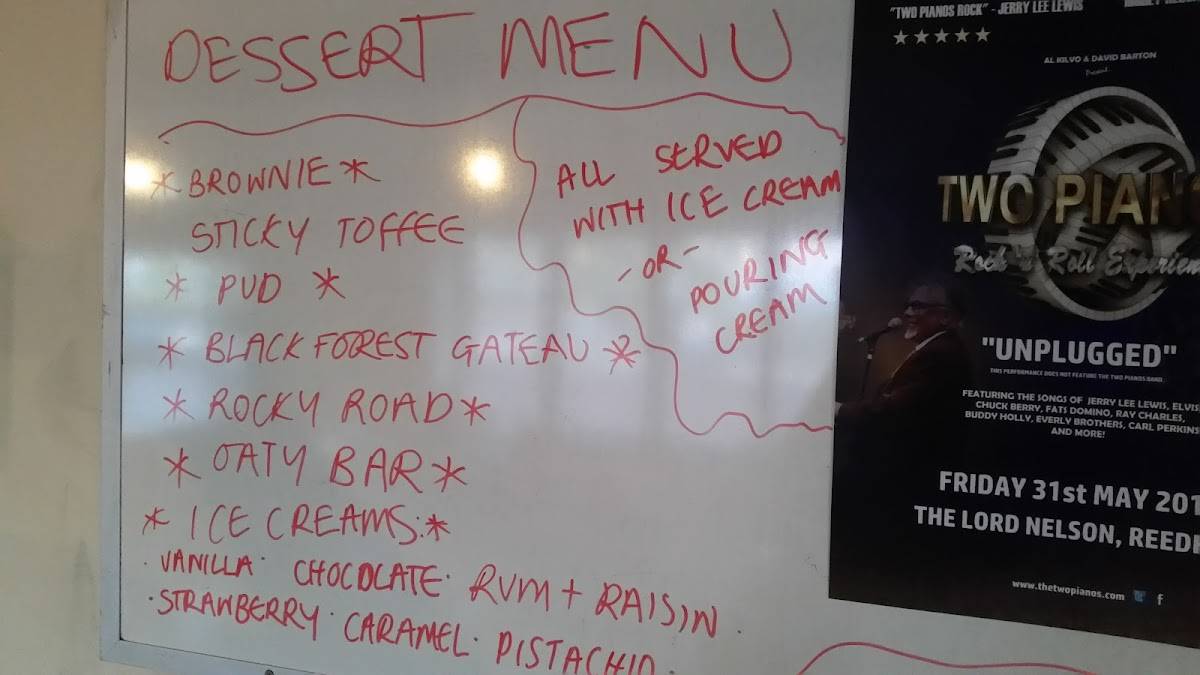 DESSERT MENU
* BROWNIE *
STICKY TOFFEE
* PUD *
* BLACK FOREST GATEAU *
* ROCKY ROAD *
* OATY BAR *
* ICE CREAMS: *
· VANILLA · CHOCOLATE · RUM + RAISIN ·
· STRAWBERRY · CARAMEL · PISTACHIO ·
ALL SERVED
WITH ICE CREAM
- OR -
POURING
CREAM
"TWO PIANOS ROCK" - JERRY LEE LEWIS
★★★★★
AL KILVO & DAVID BARTON
Present
TWO PIANO
Rock n Roll Experien
"UNPLUGGED"
THIS PERFORMANCE DOES NOT FEATURE THE TWO PIANOS BAND
FEATURING THE SONGS OF JERRY LEE LEWIS, ELVIS
CHUCK BERRY, FATS DOMINO, RAY CHARLES,
BUDDY HOLLY, EVERLY BROTHERS, CARL PERKINS
AND MORE!
FRIDAY 31st MAY 201
THE LORD NELSON, REEDH
www.thetwopianos.com f